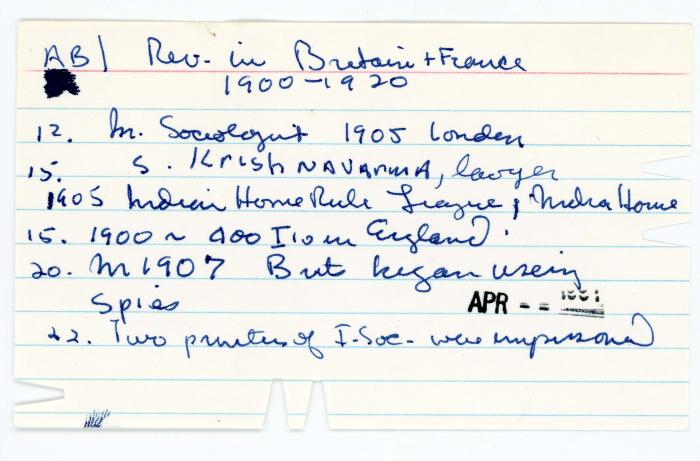 AB| Rev. in Britain + France
1900–1920
12. In. Sociologist 1905 London
15. S. KRISHNAVARMA, lawyer
1905 Indian Home Rule League, India House
15. 1900 ~ 400 I's in England.
20. In 1907 Brits began using
spies
APR - -
22. Two printers of I-Soc- were imprisoned